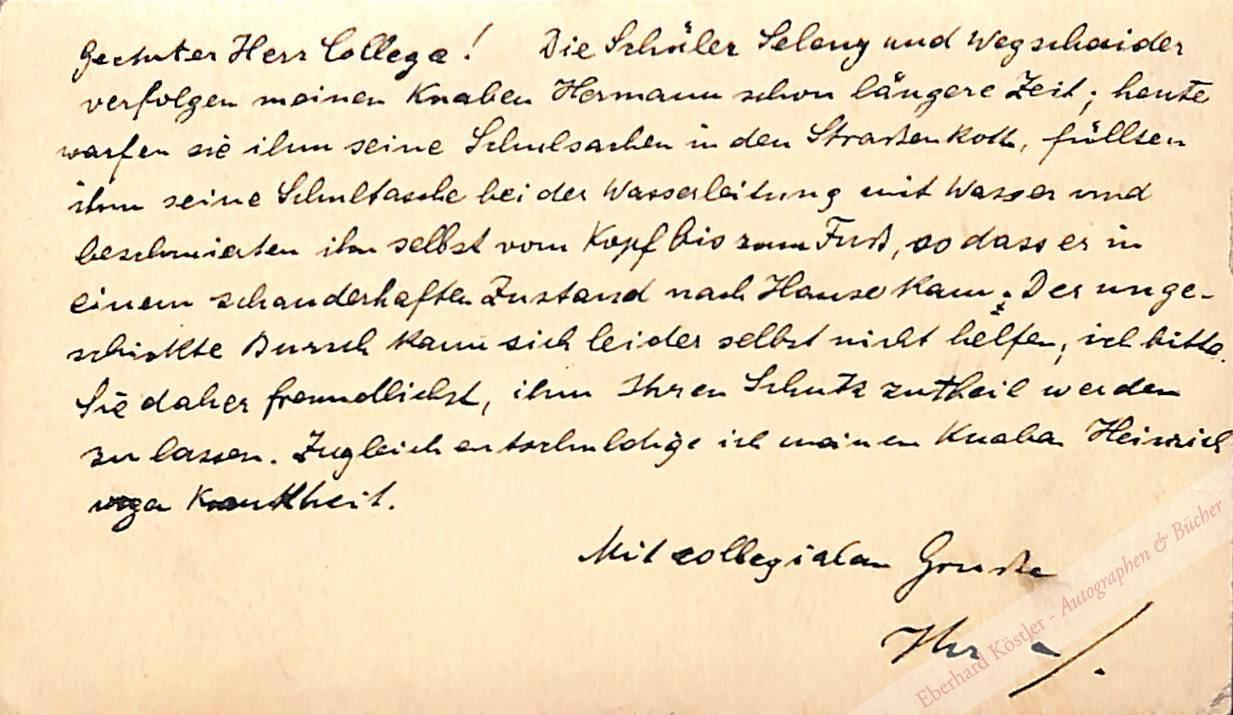 Geehrter Herr Collega! Die Schüler Seleny und Wegschaider
verfolgen meinen Knaben Hermann schon längere Zeit; heute
warfen sie ihm seine Schulsachen in den Straßenkoth, füllten
ihm seine Schultasche bei der Wasserleitung mit Wasser und
beschmierten ihn selbst vom Kopf bis zum Fuß, so dass er in
einem schauderhaften Zustand nach Hause kam. Der unge-
schickte Bursch kann sich leider selbst nicht helfen; ich bitte
Sie daher freundlichst, ihm Ihren Schutz zutheil werden
zu lassen. Zugleich entschuldige ich meinen Knaben Heinrich
wegen Krankheit.
Mit collegialen Gruße
Ihr
Eberhard Köstler - Autographen & Bücher